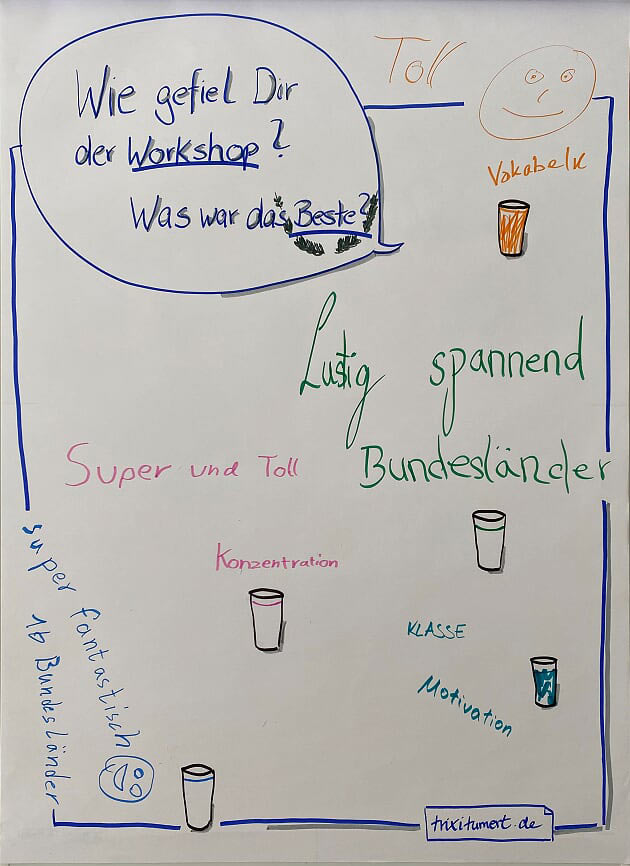 Wie gefiel Dir
der Workshop?
Was war das Beste?
Toll
Vokabeln
Lustig spannend
Bundesländer
Super und Toll
Konzentration
KLASSE
Motivation
super fantastisch
16 Bundesländer
trixitumert.de